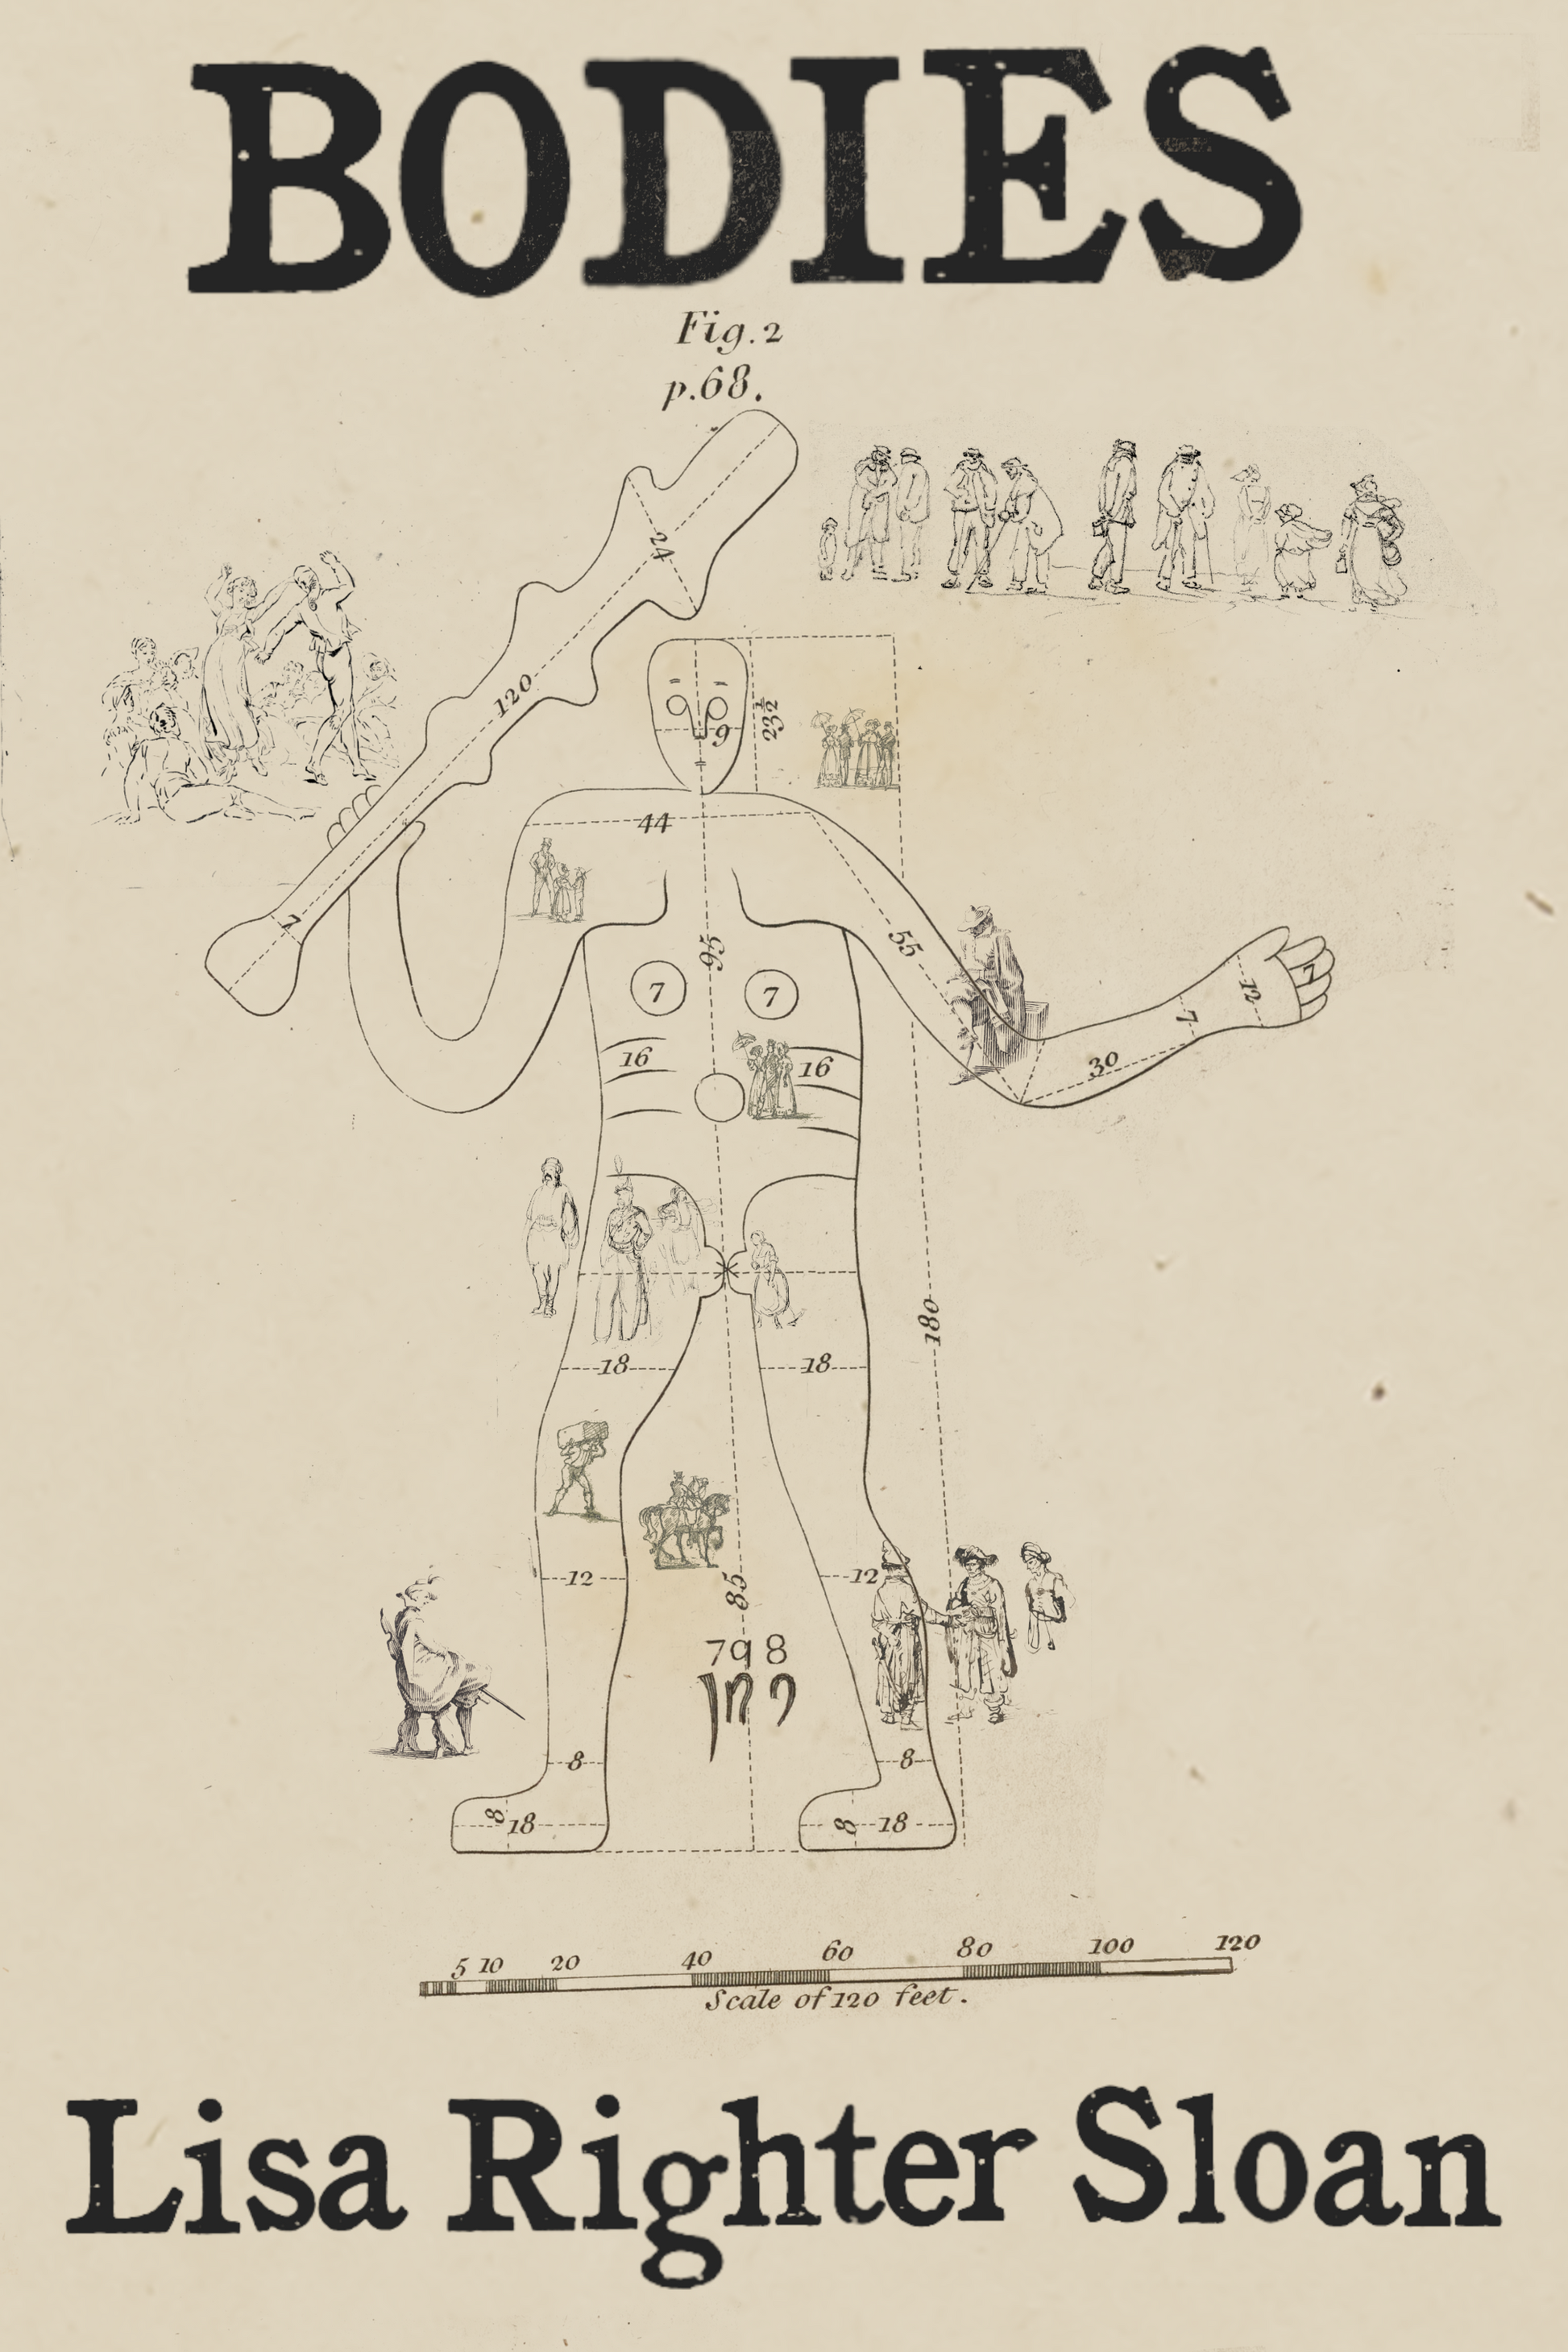 BODIES
Fig. 2
p. 68.
24
120
23½
9
44
7
95
55
7
7
12
7
7
16
16
30
180
18
18
12
12
85
798
8
8
8
18
8
18
5 10 20 40 60 80 100 120
Scale of 120 feet.
Lisa Righter Sloan